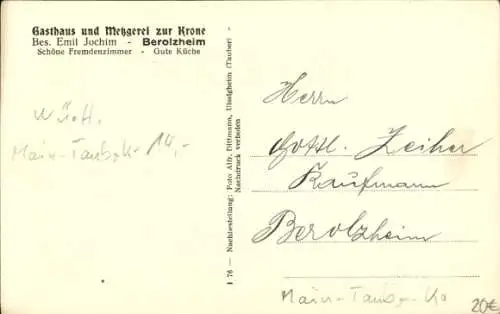 Gasthaus und Metzgerei zur Krone
Bes. Emil Jochim - Berolzheim
Schöne Fremdenzimmer - Gute Küche
Württ.
Main-Taubek- 14,-
I 76 — Nachlestellung: Foto Alfr. Dittmann, Uissigheim (Tauber) -
Nachdruck verboten
Herrn
Gottl. Zeiher
Kaufmann
Berolzheim
Main-Tauber-Kr
20€